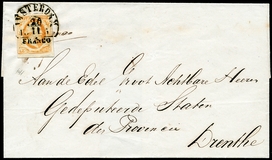 AMSTERDAM
20
11
FRANCO
Aan de Edel Groot Achtbare Heeren
Gedeputeerde Staten
der Provincie
Drenthe